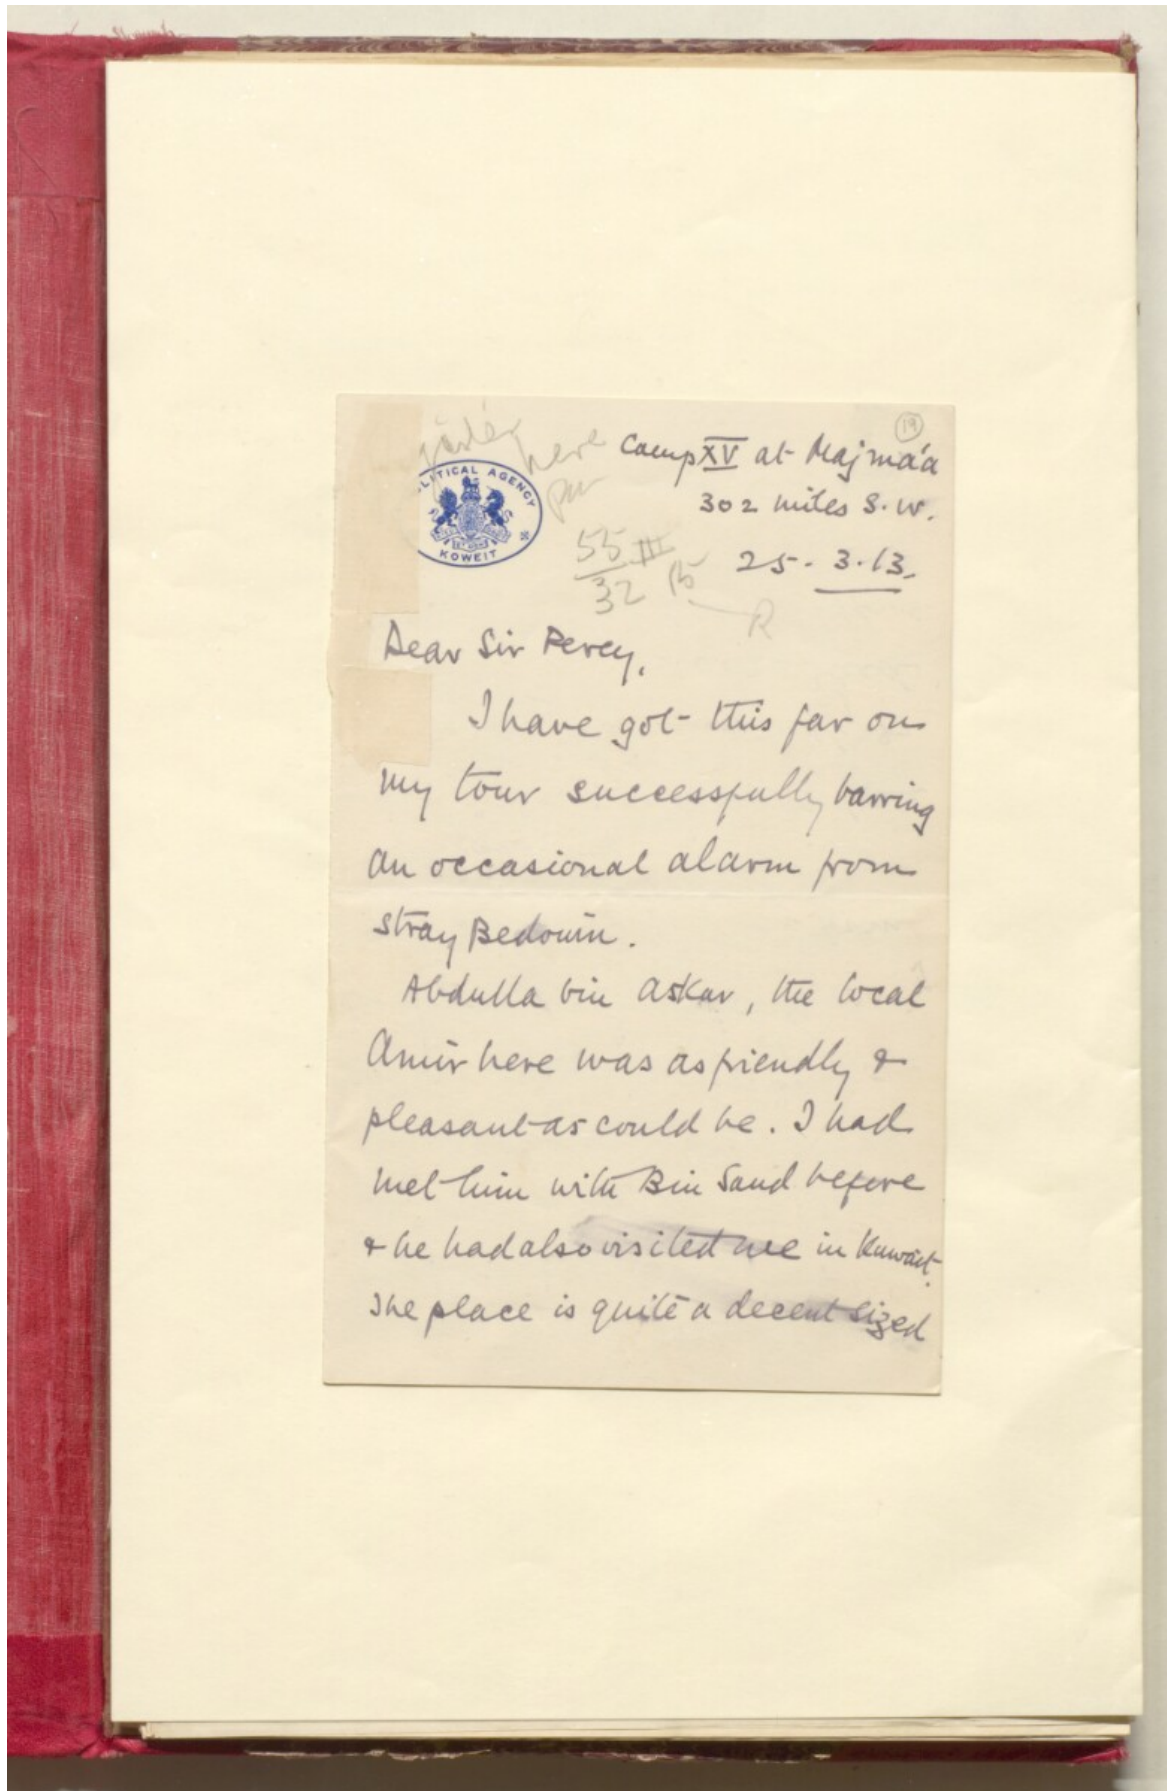 19
Camp XV at Majma'a
302 miles S.W.
25.3.13.
POLITICAL AGENCY
KOWEIT
here
55 III
32
R
Dear Sir Percy,
I have got this far on
my tour successfully barring
an occasional alarm from
stray Bedouin.
Abdulla bin Askar, the local
Amir here was as friendly &
pleasant as could be. I had
met him with Bin Saud before
& he had also visited me in Kuwait.
The place is quite a decent sized